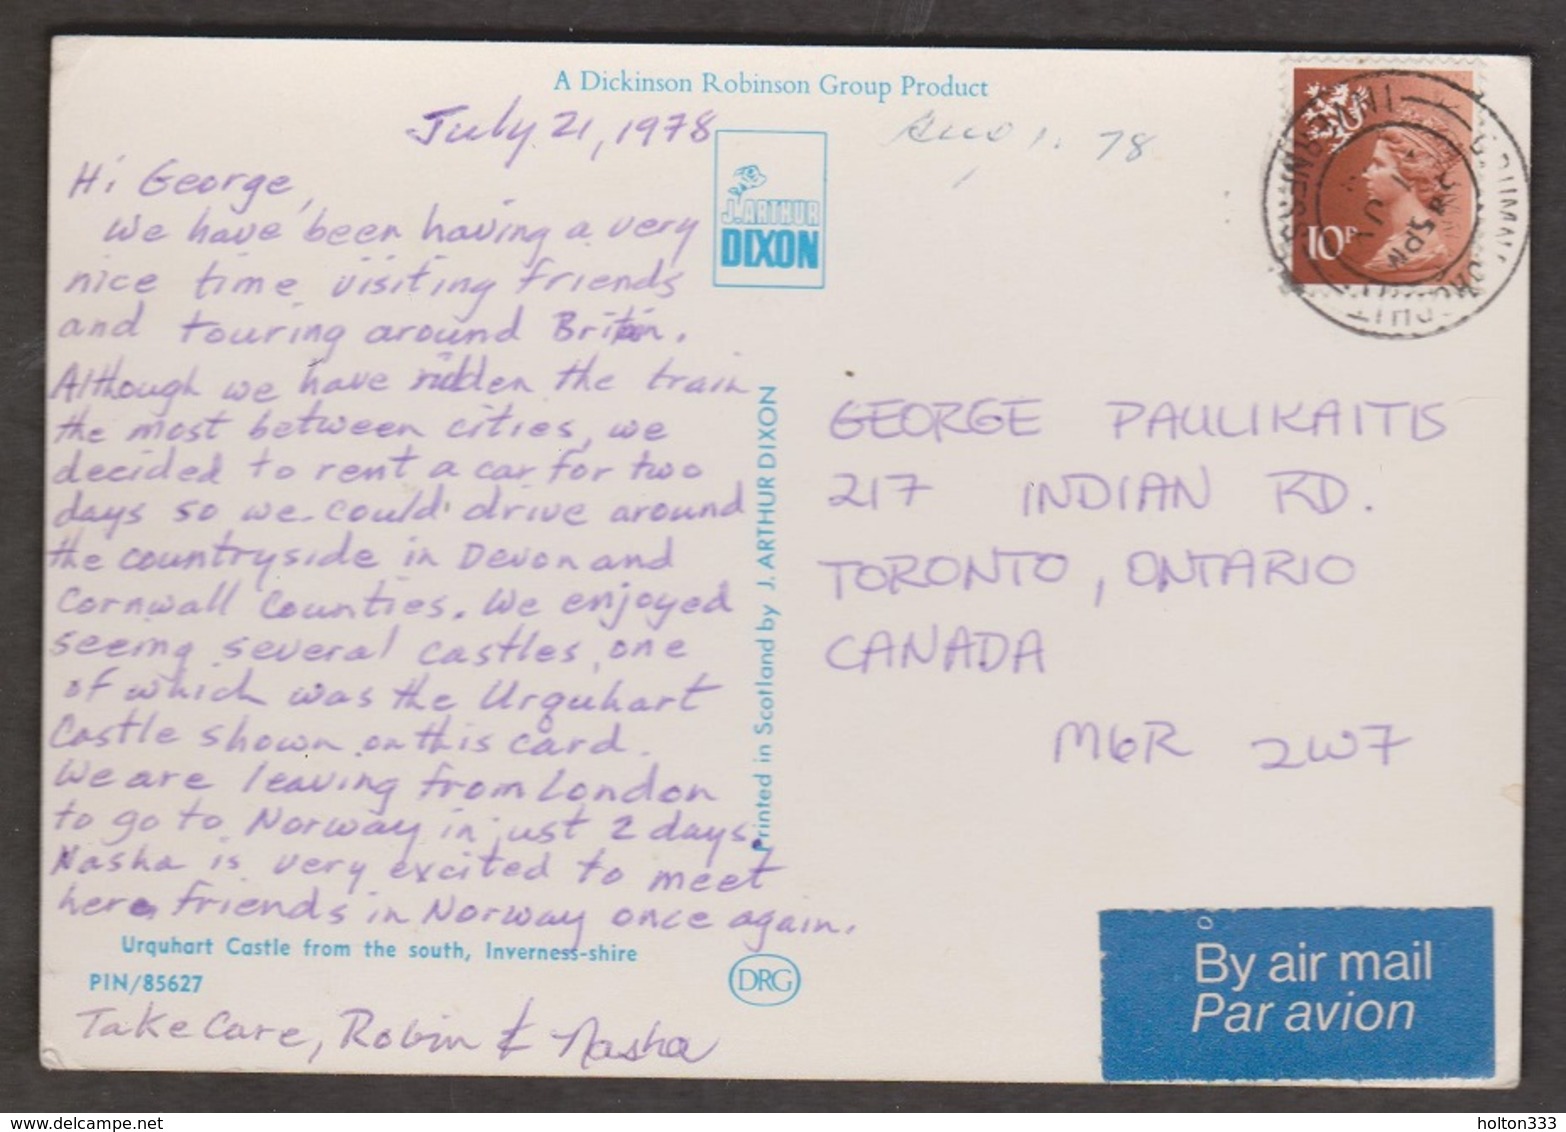 A Dickinson Robinson Group Product
July 21, 1978
Aug 1. 78
Hi George,
We have been having a very
nice time visiting friends
and touring around Britain.
Although we have ridden the train
the most between cities, we
decided to rent a car for two
days so we could drive around
the countryside in Devon and
Cornwall Counties. We enjoyed
seeing several castles, one
of which was the Urquhart
Castle shown on this card.
We are leaving from London
to go to Norway in just 2 days.
Nasha is very excited to meet
here friends in Norway once again.
Urquhart Castle from the south, Inverness-shire
PIN/85627
Take Care, Robin & Nasha
J. ARTHUR
DIXON
Printed in Scotland by J. ARTHUR DIXON
DRG
10P
5 PM
GEORGE PAULIKAITIS
217 INDIAN RD.
TORONTO, ONTARIO
CANADA
M6R 2W7
By air mail
Par avion
holton333